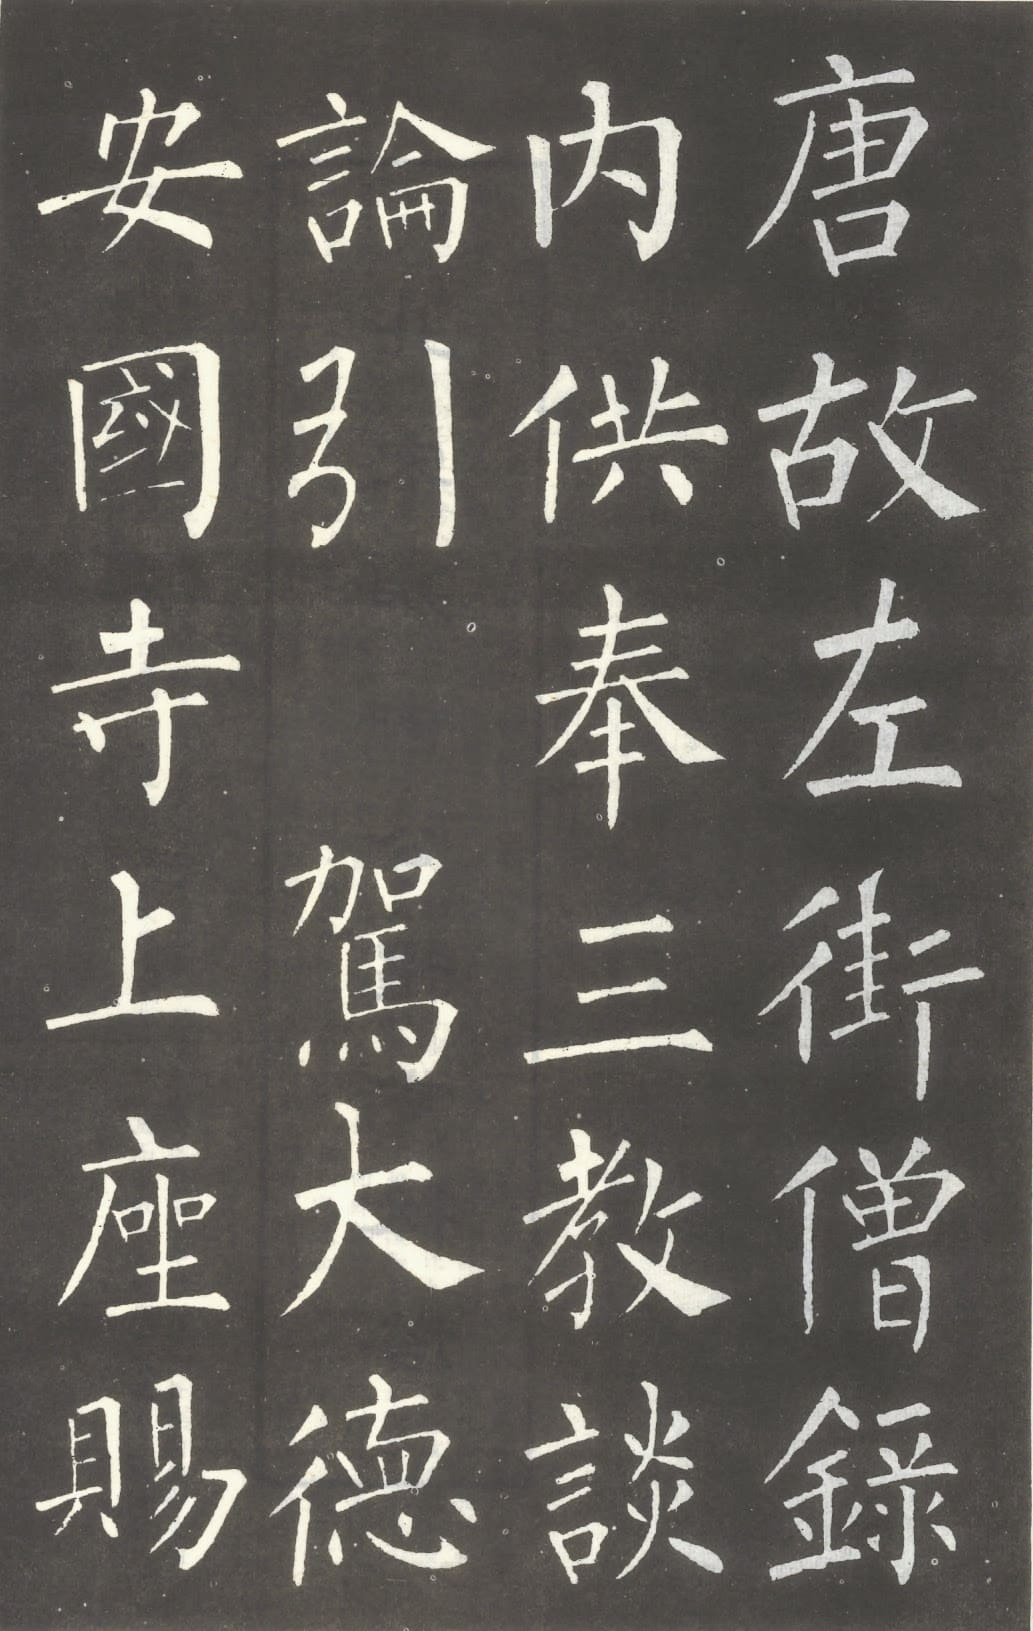 唐故左街僧錄
內供奉三教談
論引　駕大德
安國寺上座賜